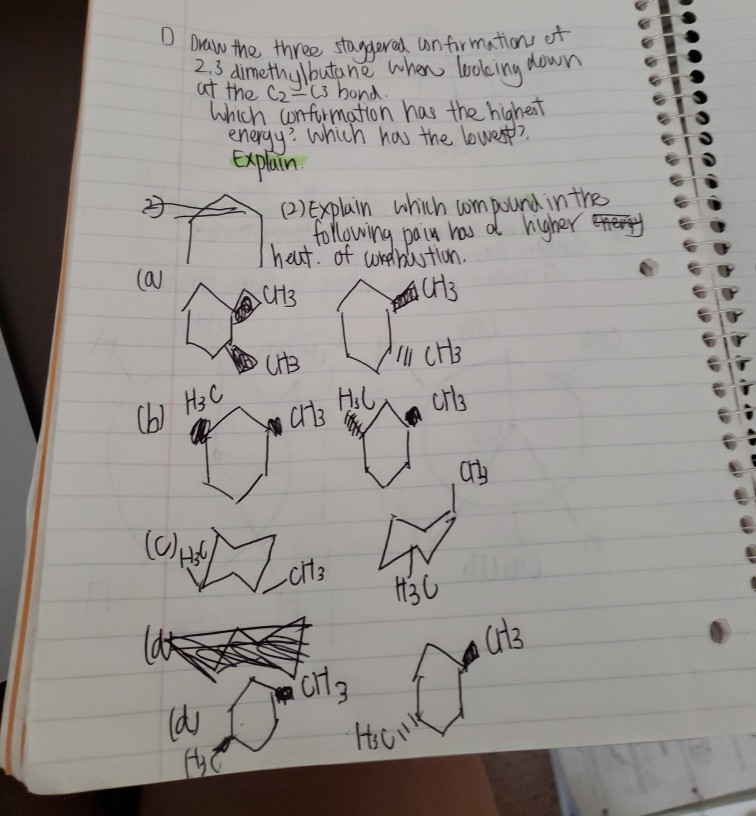 1) Draw the three staggered confirmations of
2,3 dimethylbutane when looking down
at the C2-C3 bond.
Which conformation has the highest
energy? Which has the lowest?
Explain.
(2) Explain which compound in the
following pair has a higher energy
heat. of combustion.
(a)
CH3
CH3
CH3
CH3
(b)
H3C
CH3
H3C
CH3
(c)
H3C
CH3
CH3
H3C
(d)
CH3
H3C
CH3
H3C